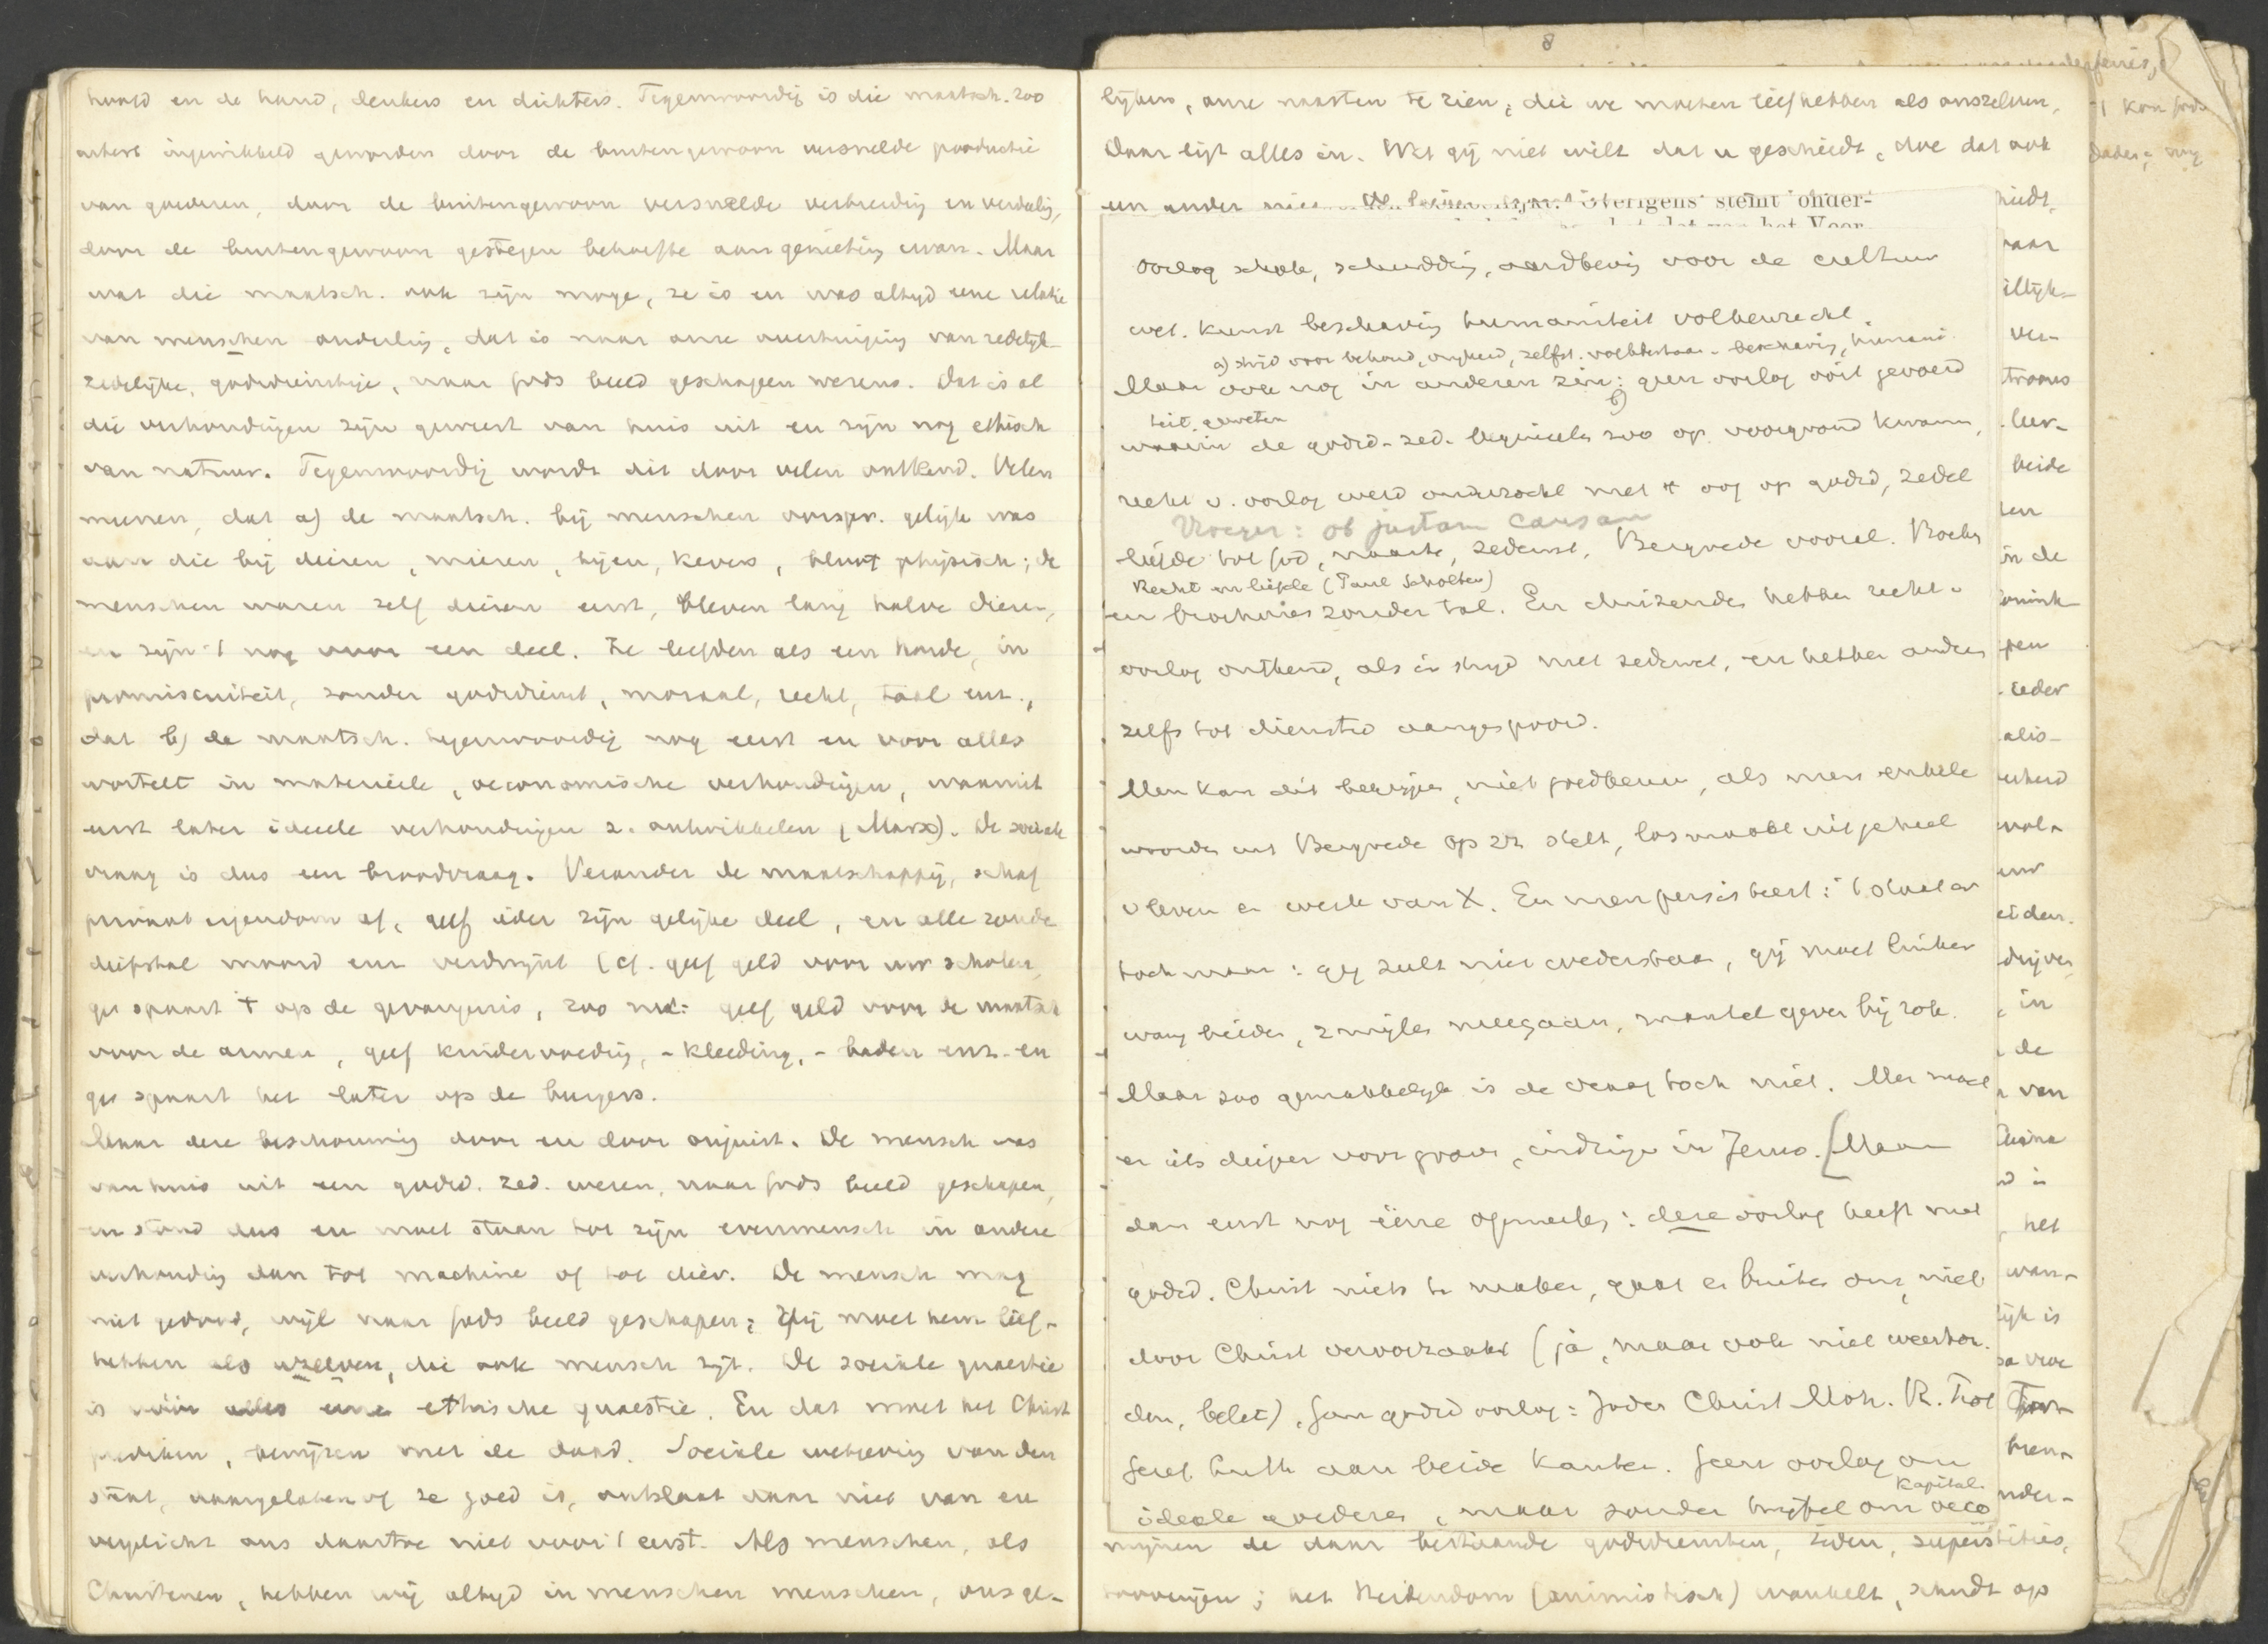 hoofd en de hand, denkers en dichters. Tegenwoordig is die maatsch. zoo
uiterst ingewikkeld geworden door de buitengewoon versnelde productie
van goederen, door de buitengewoon versnelde verbreiding en verdeling,
door de buitengewoon gestegen behoefte aan genieting ervan. Maar
wat die maatsch. ook zijn moge, ze is en was altijd eene relatie
van menschen onderling, dat is naar onze overtuiging van redelijk
zedelijke, godsdienstige, naar Gods beeld geschapen wezens. Dat is al
die verhoudingen zijn geweest van huis uit en zijn nog ethisch
van natuur. Tegenwoordig wordt dit door velen ontkend. Velen
meenen, dat a) de maatsch. bij menschen oorspr. gelijk was
aan die bij dieren, mieren, bijen, kevers, bloot physisch; de
menschen waren zelf dieren eerst, bleven lang halve dieren,
en zijn 't nog voor een deel. Ze leefden als een horde, in
promiscuiteit, zonder godsdienst, moraal, recht, taal enz.,
dat b) de maatsch. tegenwoordig nog eerst en voor alles
wortelt in materieele, oeconomische verhoudingen, waaruit
eerst later ideele verhoudingen z. ontwikkelen (Marx). De sociale
vraag is dus een broodvraag. Verander de maatschappij, schaf
privaat eigendom af, geef ieder zijn gelijke deel, en alle zonde
diefstal moord enz verdwijnt (cf. geef geld voor uw scholen,
ge spaart 't op de gevangenis, zoo nu: geef geld voor de maatsch
voor de armen, geef kindervoeding, - kleeding, - baden enz. en
ge spaart het later op de burgers.
Maar deze beschouwing door en door onjuist. De mensch was
van huis uit een godsd. zed. wezen, naar Gods beeld geschapen,
en stond dus en moet staan tot zijn evenmensch in andere
verhouding dan tot machine of tot dier. De mensch mag
niet gedood, wijl naar Gods beeld geschapen; Gij moet hem lief-
hebben als uzelven, die ook mensch zijt. De sociale quaestie
is vóór alles eene ethische quaestie. En dat moet het Christ
prediken, bewijzen met de daad. Sociale wetgeving van den
staat, daargelaten of ze goed is, ontslaat daar niet van en
verplicht ons daartoe niet voor 't eerst. Als menschen, als
Christenen, hebben wij altijd in menschen menschen, ons ge-
8
lijken, onze naasten te zien, die we moeten liefhebben als onszelven.
Daar ligt alles in. Wat gij niet wilt dat u geschiedt, doe dat ook
een ander
Overigens stemt onder-
Oorlog schok, schudding, aardbeving voor de cultuur
wet. kunst beschaving humaniteit volkenrecht.
a) strijd voor behoud, vrijheid, zelfst. volksbestaan - beschaving, humani
Maar ook nog in anderen zin: geen oorlog ooit gevoerd
b)
teit. geweten
waarin de godsd.-zed. beginselen zoo op voorgrond kwamen,
recht v. oorlog werd onderzocht met 't oog op godsd, zedel
Vroeger: ob justam causam
liefde tot God, naaste, zedewet, Bergrede vooral. Boeken
Recht en liefde (Paul Scholten)
en brochures zonder tal. En duizenden hebben recht v.
oorlog ontkend, als in strijd met zedewet, en hebben anderen
zelfs tot dienstw aangespoord.
Men kan dit begrijpen, niet goedkeuren, als men enkele
woorden uit Bergrede op zch stelt, losmaakt uit geheel
v leven en werk van X. En men persisteert: 't staat er
toch maar: gij zult niet wederstaan, gij moet linker
wang bieden, 2 mijlen meegaan, mantel geven bij rok.
Maar zoo gemakkelijk is de vraag toch niet. Men moet
er iets dieper voor graven, indringen in Jezus. [Maar
dan eerst nog eene opmerking: deze oorlog heeft met
godsd. Christ niets te maken, gaat er buiten om, niet
door Christ veroorzaakt (ja, maar ook niet weerhou-
den, belet). Geen godsd oorlog: Joden Christ Moh. R. Prot
Geref. Luth aan beide kanten. Geen oorlog om
kapital.
ideale goederen, maar zonder twijfel om oeco
mijnen de daar bestaande godsdiensten, zeden, superstities,
het Heidendom (animistisch) wankelt, schudt op
hiedt,
ver-
leer-
beide
in de
ieder
, in
de
van
China
het
wan-
lijk is
nder-